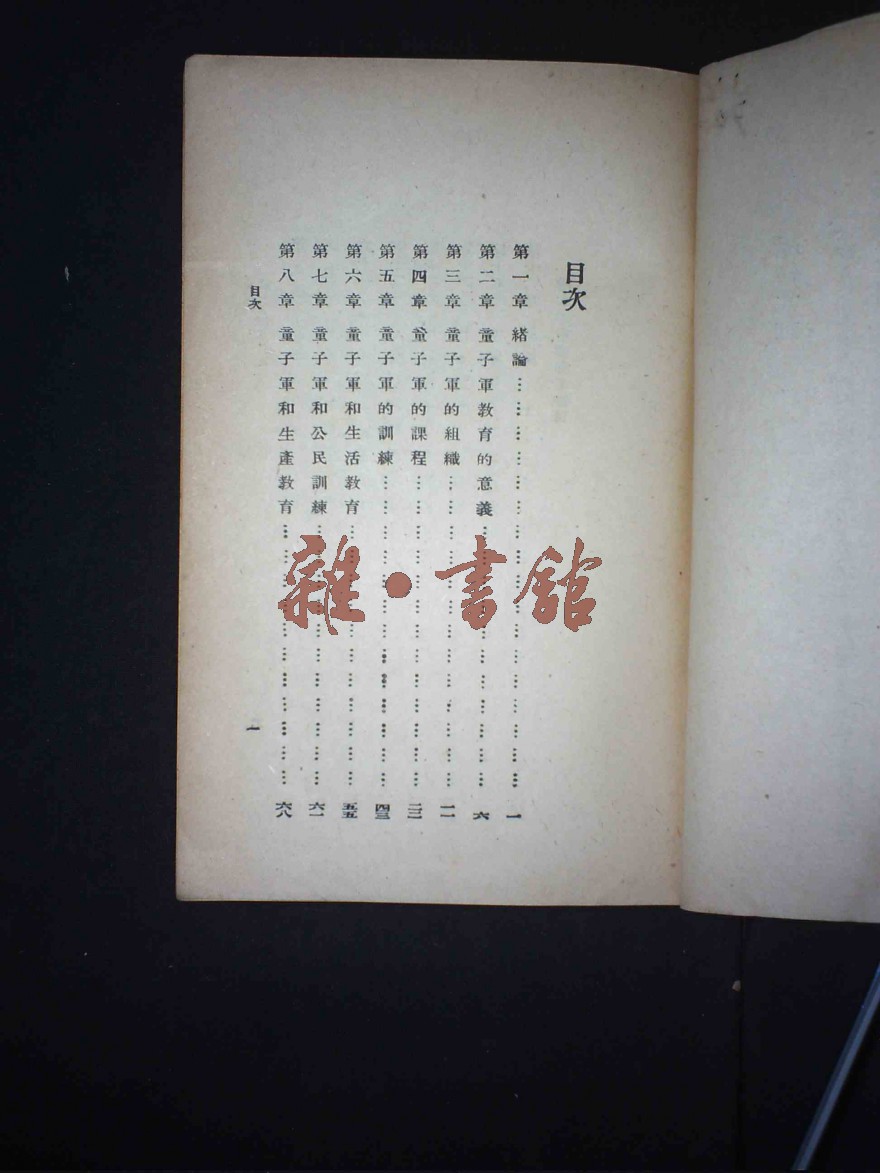 目次
第一章 緒論……………………………………一
第二章 童子軍教育的意義……………………………六
第三章 童子軍的組織……………………………一一
第四章 童子軍的課程……………………………二三
第五章 童子軍的訓練……………………………四三
第六章 童子軍和生活教育……………………………五五
第七章 童子軍和公民訓練……………………………六一
第八章 童子軍和生產教育……………………………六八
目次
一
雜·書館